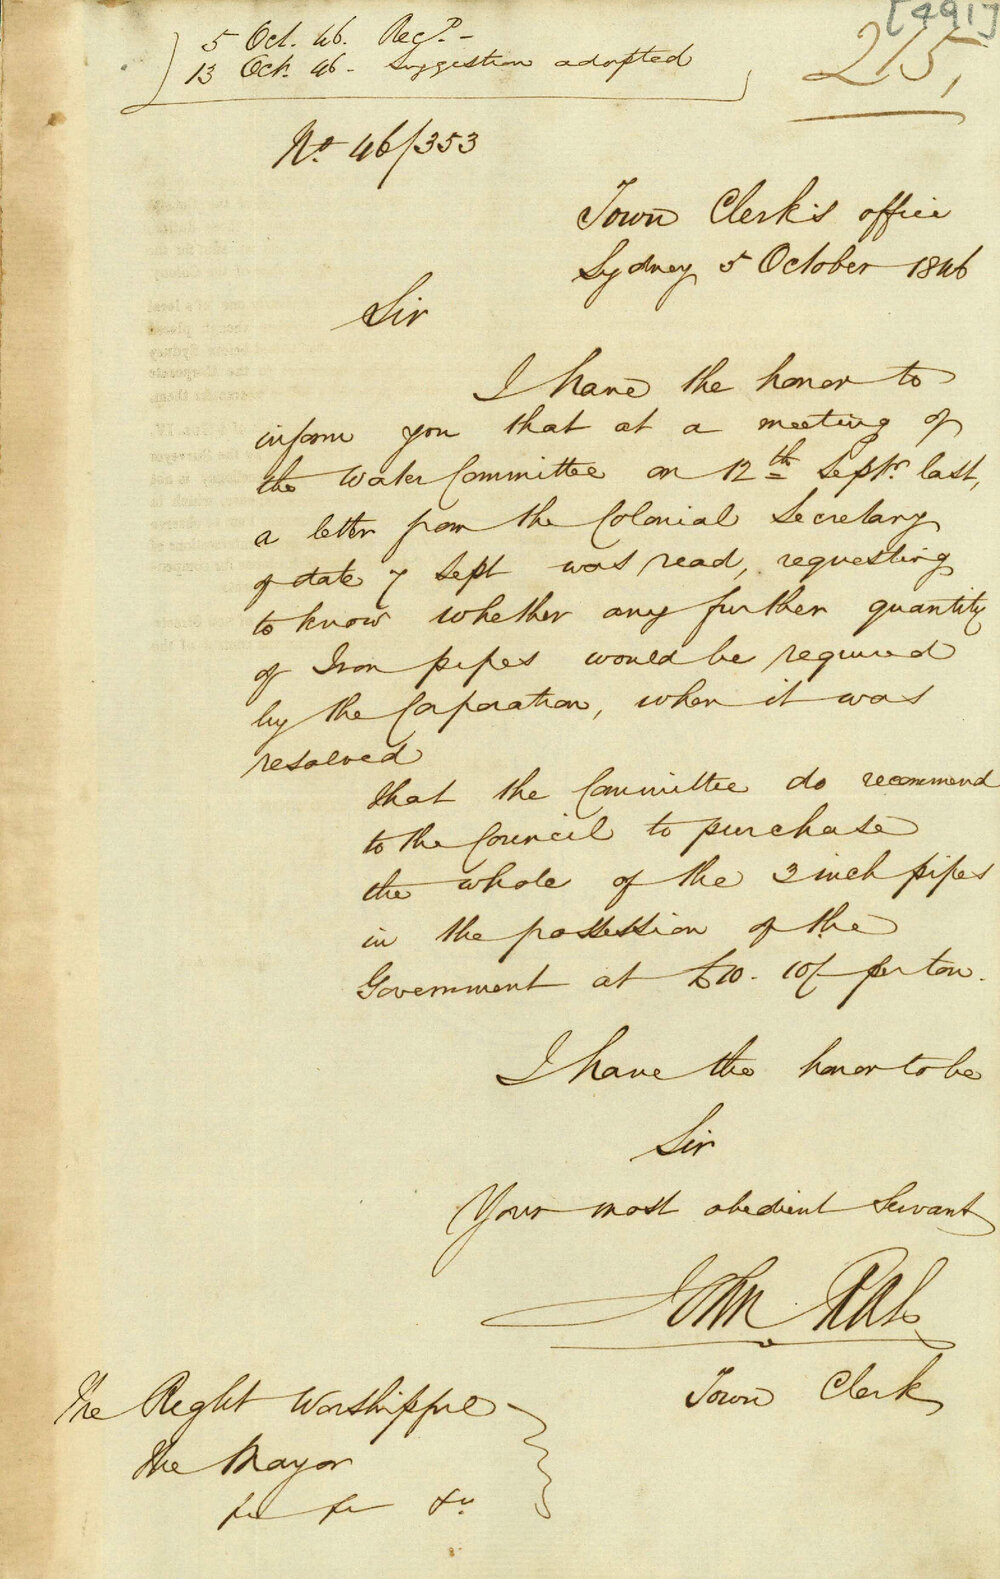 [491]
215,
5 Oct. 46. Recd. -
13 Oct. 46 - Suggestion adopted
No. 46/353
Town Clerk's office
Sydney 5 October 1846
Sir
I have the honor to
inform you that at a meeting of
the Water Committee on 12th Septr. last,
a letter from the Colonial Secretary
of date 7 Sept was read, requesting
to know whether any further quantity
of Iron pipes would be required
by the Corporation, when it was
resolved
that the Committee do recommend
to the Council to purchase
the whole of the 3 inch pipes
in the possession of the
Government at £10. 10/- per ton.
I have the honor to be
Sir
Your most obedient Servant
John Rae
Town Clerk
The Right Worshipful
the Mayor
&c &c &c.